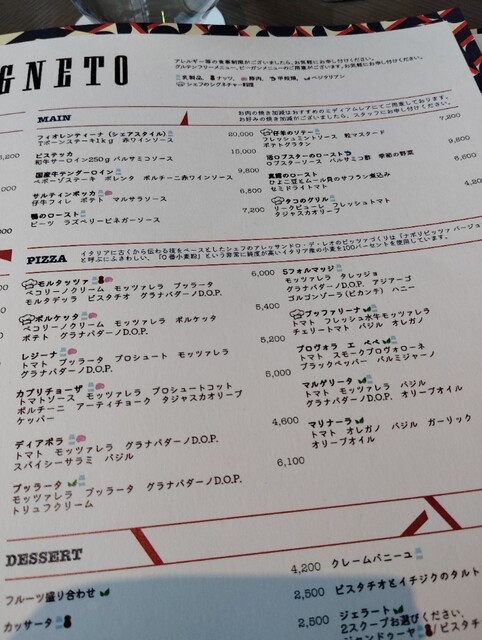 GNETO
アレルギー等の食事制限がございましたら、お気軽にお申し付けください。
グルテンフリーメニュー、ビーガンメニューのご用意がございます。お気軽にお申し付けください。
乳製品、 ナッツ、 豚肉、 甲殻類、 ベジタリアン
シェフのシグネチャー料理
MAIN
フィオレンティーナ (シェアスタイル) 20,000
Tボーンステーキ1kg 赤ワインソース
ビステッカ 15,000
和牛サーロイン250g バルサミコソース
国産牛テンダーロイン 9,800
ペポーゾステーキ ポレンタ ポルチーニ赤ワインソース
サルティンボッカ 6,800
仔牛フィレ ポテト マルサラソース
鴨のロースト 7,200
ビーツ ラズベリービネガーソース
お肉の焼き加減はおすすめのミディアムレアにてご用意しております。
お好みの焼き加減がございましたら、スタッフにお申し付けください。
仔羊のソテー 7,200
フレッシュミントソース 粒マスタード
ポテトグラタン
活ロブスターのロースト 9,800
ロブスターソース バルサミコ酢 季節の野菜
真鯛のロースト 6,800
ひよこ豆とムール貝のサフラン煮込み
セミドライトマト
タコのグリル
リークピューレ フレッシュトマト
タジャスカオリーブ
PIZZA
イタリアに古くから伝わる味をベースとしたシェフのアレッサンドロ・デ・レオのピッツァづくりは「ナポリピッツァ バージョン
と呼ぶにふさわしい、「0番小麦粉」という非常に純度が高いイタリア産の小麦を100パーセントを使用しています。
モルタッツァ 6,000
ペコリーノクリーム モッツァレラ ブッラータ
モルタデッラ ピスタチオ グラナパダーノD.O.P.
ポルケッタ 5,400
ペコリーノクリーム モッツァレラ ポルケッタ
ポテト グラナパダーノD.O.P.
レジーナ 5,200
トマト ブッラータ プロシュート モッツァレラ
グラナパダーノD.O.P.
カプリチョーザ 5,000
トマトソース モッツァレラ プロシュートコット
ポルチーニ アーティチョーク タジャスカオリーブ
ケッパー
ディアボラ 4,600
トマト モッツァレラ グラナパダーノD.O.P.
スパイシーサラミ バジル
ブッラータ 6,100
モッツァレラ ブッラータ グラナパダーノD.O.P.
トリュフクリーム
5フォルマッジ
モッツァレラ タレッジョ
グラナパダーノD.O.P. アジアーゴ
ゴルゴンゾーラ(ピカンテ) ハニー
ブッファリーナ
トマト フレッシュ水牛モッツァレラ
チェリートマト バジル オレガノ
プロヴォラ エ ペペ
トマト スモークプロヴォローネ
ブラックペッパー パルミジャーノ
マルゲリータ
トマト モッツァレラ バジル
グラナパダーノD.O.P. オリーブオイル
マリナーラ
トマト オレガノ バジル ガーリック
オリーブオイル
DESSERT
フルーツ盛り合わせ 4,200
カッサータ 2,500
2,500
クレームバニーユ
ピスタチオとイチジクのタルト
ジェラート
2スクープお選びください。